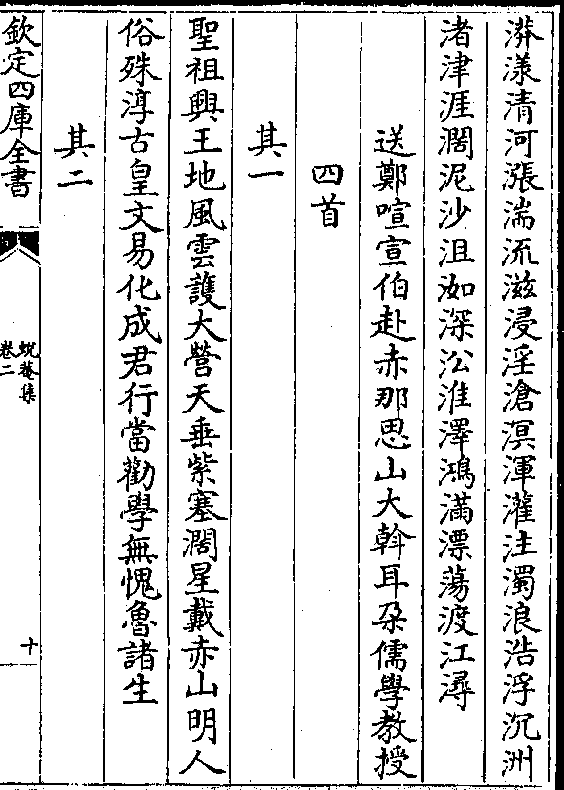 漭漾清河漲湍流滋浸淫滄溟渾灌注濁浪浩浮沉洲
渚津涯濶泥沙沮洳深㳂淮澤鴻滿漂蕩渡江潯
送鄭喧宣伯赴赤那思山大斡耳朶儒學教授
四首
其一
聖祖興王地風雲護大營天垂紫塞濶星戴赤山明人
俗殊淳古皇文易化成君行當勸學無愧魯諸生
其二
欽定四庫全書
蛻菴集
卷二
十